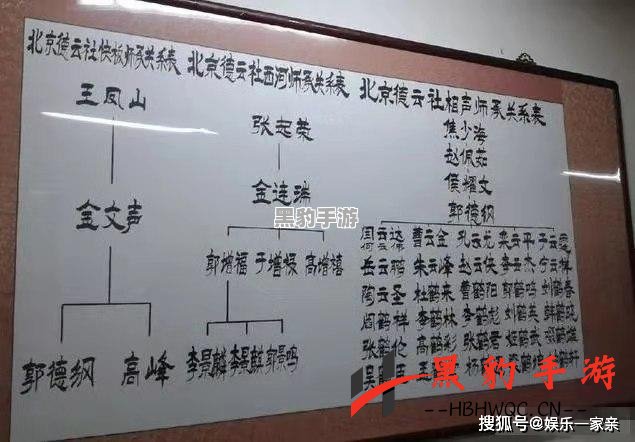 北京德云社快板师承关系表
王凤山
金文声
郭德纲 高峰
北京德云社西河师承关系表
张志荣
金连瑞
郭增福 于增禄 高增禧
李景麟 李景麟 郭景鸣
北京德云社相声师承关系表
焦少海
赵佩茹
侯耀文
郭德纲
曹云金 孔云龙 栾云平 于云霆
岳云鹏 朱云峰 赵云侠 李云杰 宁云祥
陶云圣 杜鹤来 曹鹤阳 郭鹤鸣 刘鹤春
阎鹤祥 李鹤林 李鹤彪 刘鹤英
张鹤伦 高鹤彩 张鹤君
吴 王 杨
黑豹手游
黑豹手游
--HBHWQC.CN--
搜狐号@娱乐一家亲